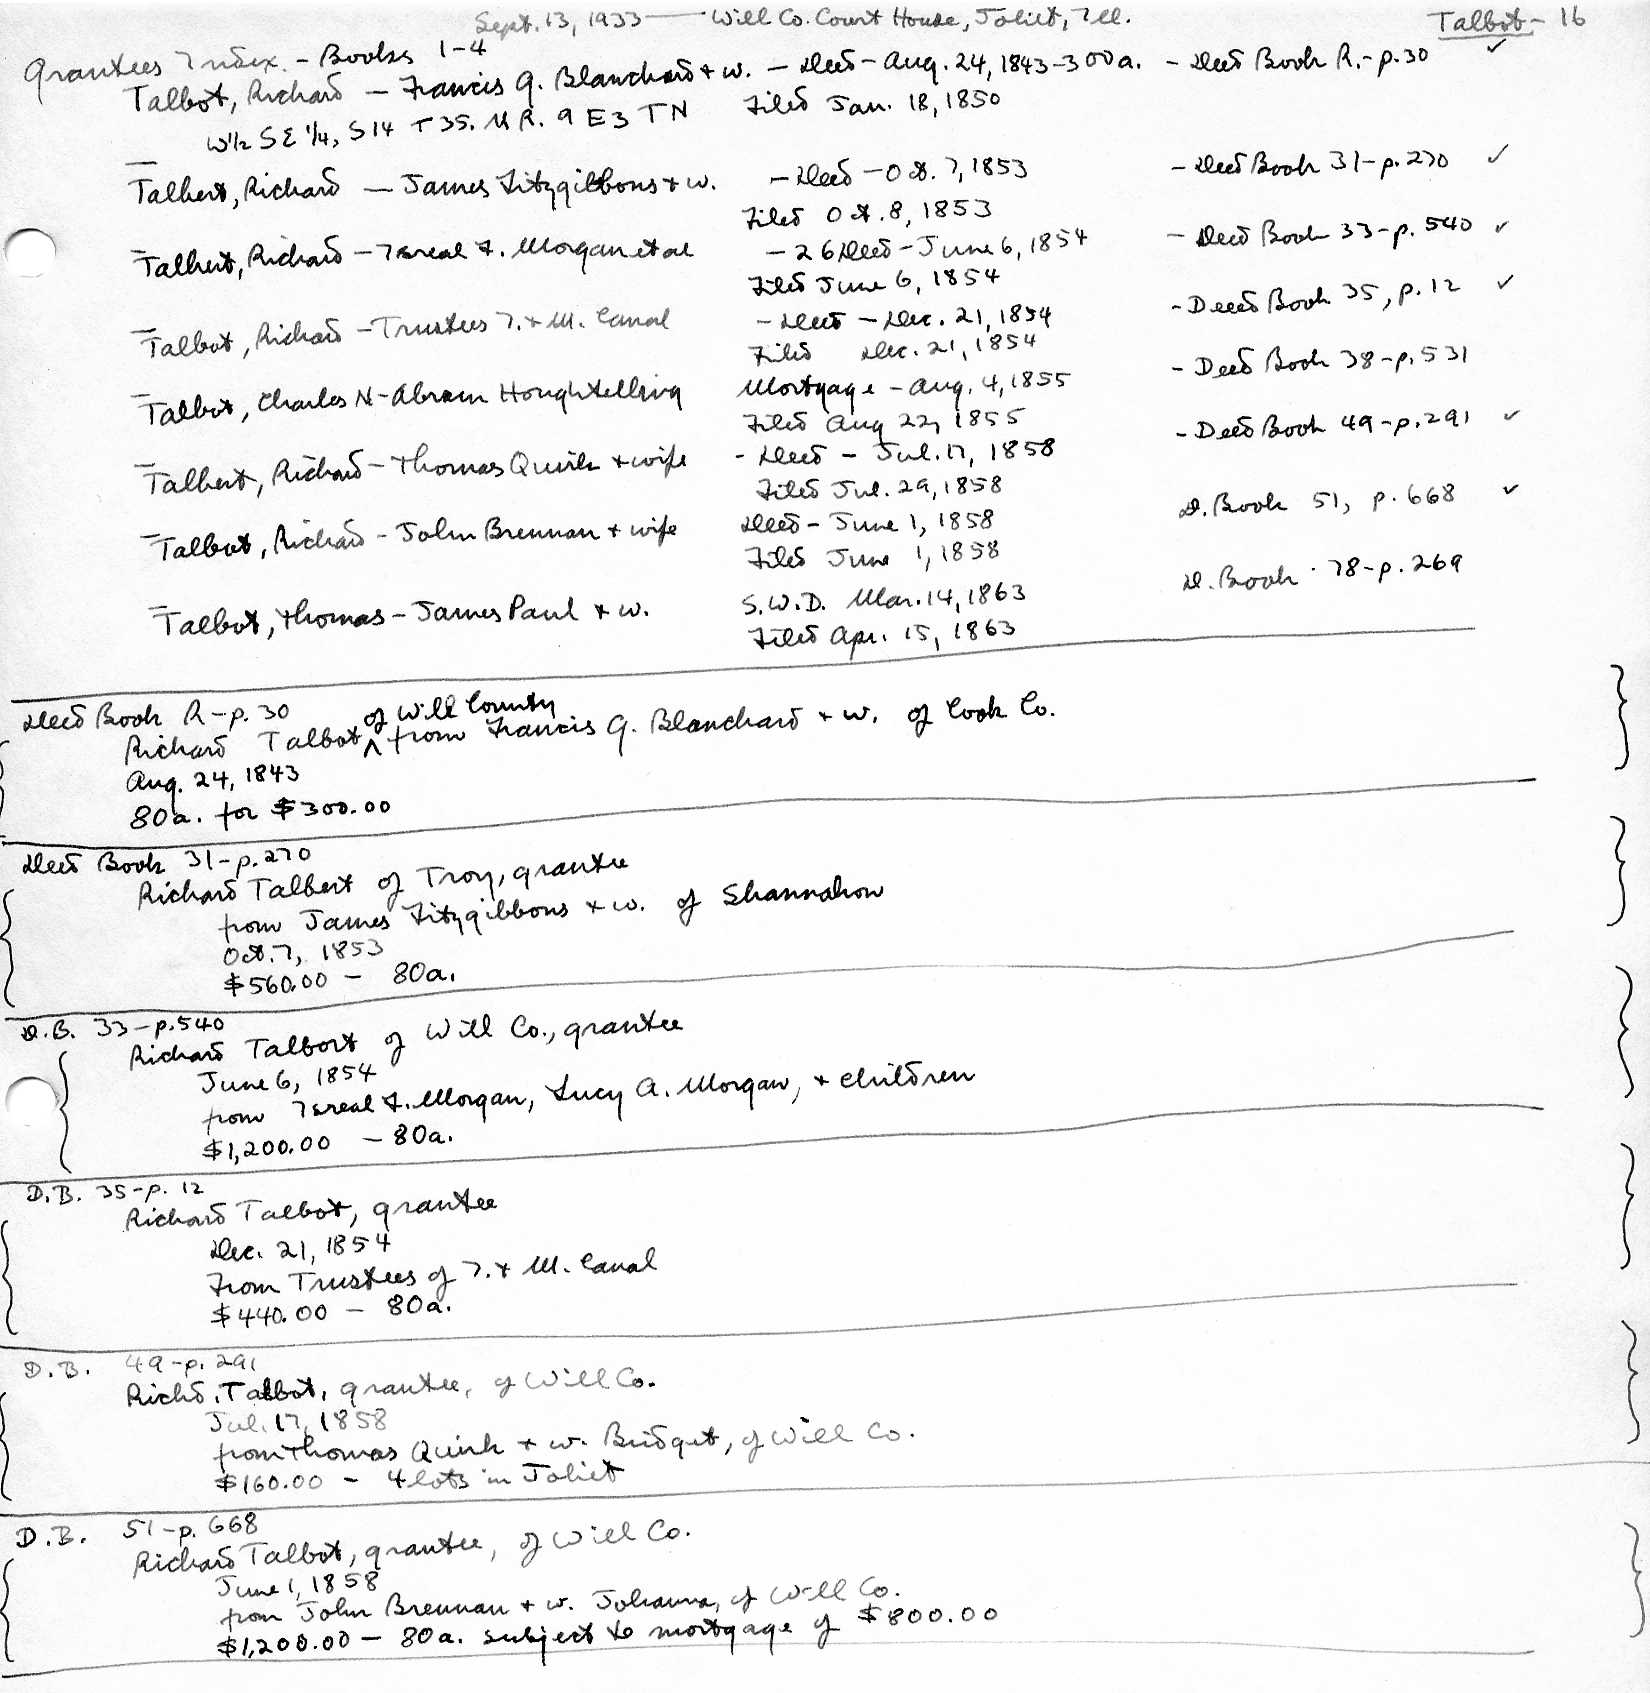 Sept. 13, 1933 — Will Co. Court House, Joliet, Ill. Talbot - 16
Grantees Index. - Books 1-4
Talbot, Richard — Francis G. Blanchard + w. — Deed - Aug. 24, 1843 - 300 a. - Deed Book R. - p. 30 ✓
W 1/2 S E 1/4, S 14 T 35. N R. 9 E 3 T N Filed Jan. 18, 1850
Talbert, Richard — James Fitzgibbons + w. - Deed - Oct. 7, 1853 - Deed Book 31 - p. 270 ✓
Filed Oct. 8, 1853
Talbert, Richard - Isreal F. Morgan et al - 26 Deed - June 6, 1854 - Deed Book 33 - p. 540 ✓
Filed June 6, 1854
Talbot, Richard - Trustees I. + M. Canal - Deed - Dec. 21, 1854 - Deed Book 35, p. 12 ✓
Filed Dec. 21, 1854
Talbot, Charles N - Abram Houghtelling Mortgage - Aug. 4, 1855 - Deed Book 38 - p. 531
Filed Aug 22, 1855
Talbert, Richard - Thomas Quirk + wife - Deed - Jul. 17, 1858 - Deed Book 49 - p. 291 ✓
Filed Jul. 29, 1858
Talbot, Richard - John Brennan + wife Deed - June 1, 1858 D. Book 51, p. 668 ✓
Filed June 1, 1858
Talbot, Thomas - James Paul + w. S.W.D. Mar. 14, 1863 D. Book 78 - p. 269
Filed Apr. 15, 1863
Deed Book R - p. 30
Richard Talbot ^ of Will County from Francis G. Blanchard + w. of Cook Co.
Aug. 24, 1843
80 a. for $300.00
Deed Book 31 - p. 270
Richard Talbert of Troy, grantee
from James Fitzgibbons + w. of Shannahon
Oct. 7, 1853
$560.00 - 80 a.
D.B. 33 - p. 540
Richard Talbort of Will Co., grantee
June 6, 1854
from Isreal F. Morgan, Lucy A. Morgan, + children
$1,200.00 - 80 a.
D.B. 35 - p. 12
Richard Talbot, grantee
Dec. 21, 1854
From Trustees of I. + M. Canal
$440.00 - 80 a.
D.B. 49 - p. 291
Richd. Talbot, grantee, of Will Co.
Jul. 17, 1858
from Thomas Quirk + w. Bridget, of Will Co.
$160.00 - 4 lots in Joliet
D.B. 51 - p. 668
Richard Talbot, grantee, of Will Co.
June 1, 1858
from John Brennan + w. Johanna, of Will Co.
$1,200.00 - 80 a. subject to mortgage of $800.00